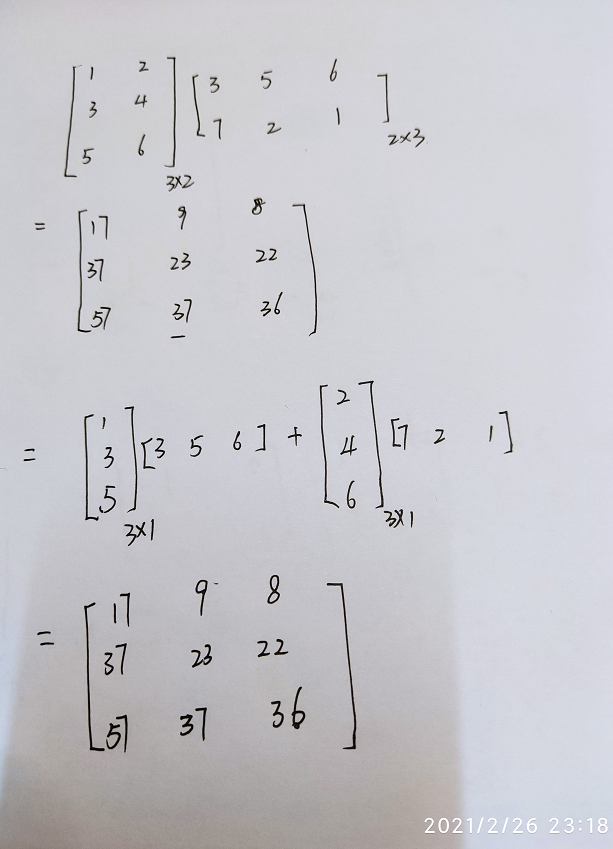 [1 2
3 4
5 6]3×2 [3 5 6
7 2 1]2×3
= [17 9 8
37 23 22
57 37 36]
= [1
3
5]3×1 [3 5 6] + [2
4
6]3×1 [7 2 1]
= [17 9 8
37 23 22
57 37 36]
2021/2/26 23:18